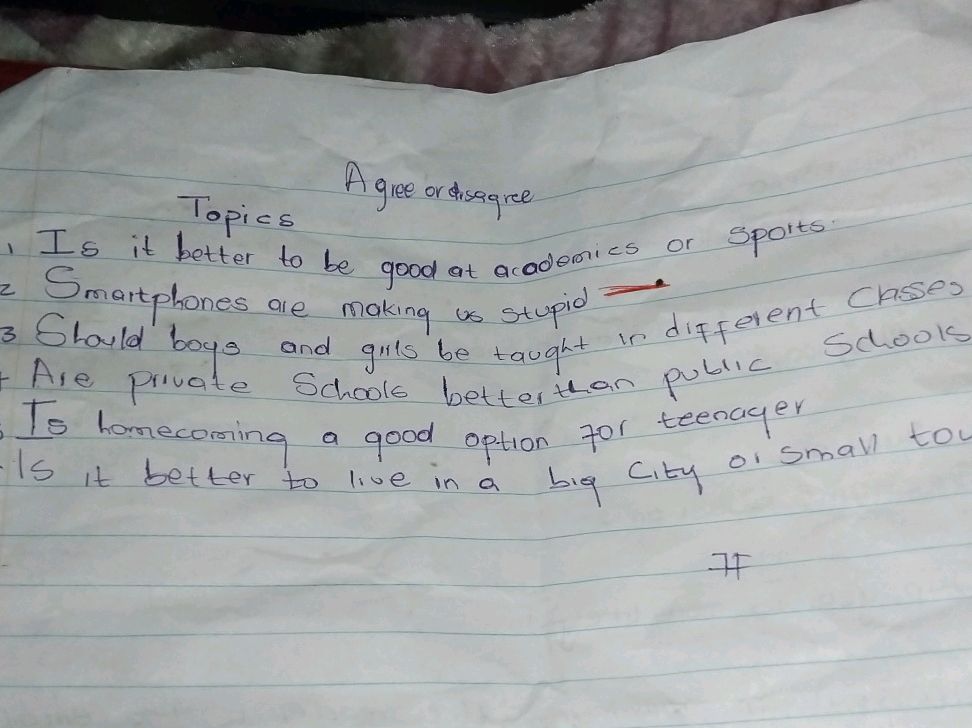 Agree or disagree
Topics
1 Is it better to be good at academics or sports.
2 Smartphones are making us stupid
3 Should boys and girls be taught in different Classes
Are private Schools better than public Schools
Is homecoming a good option for teenager
Is it better to live in a big City or small tow